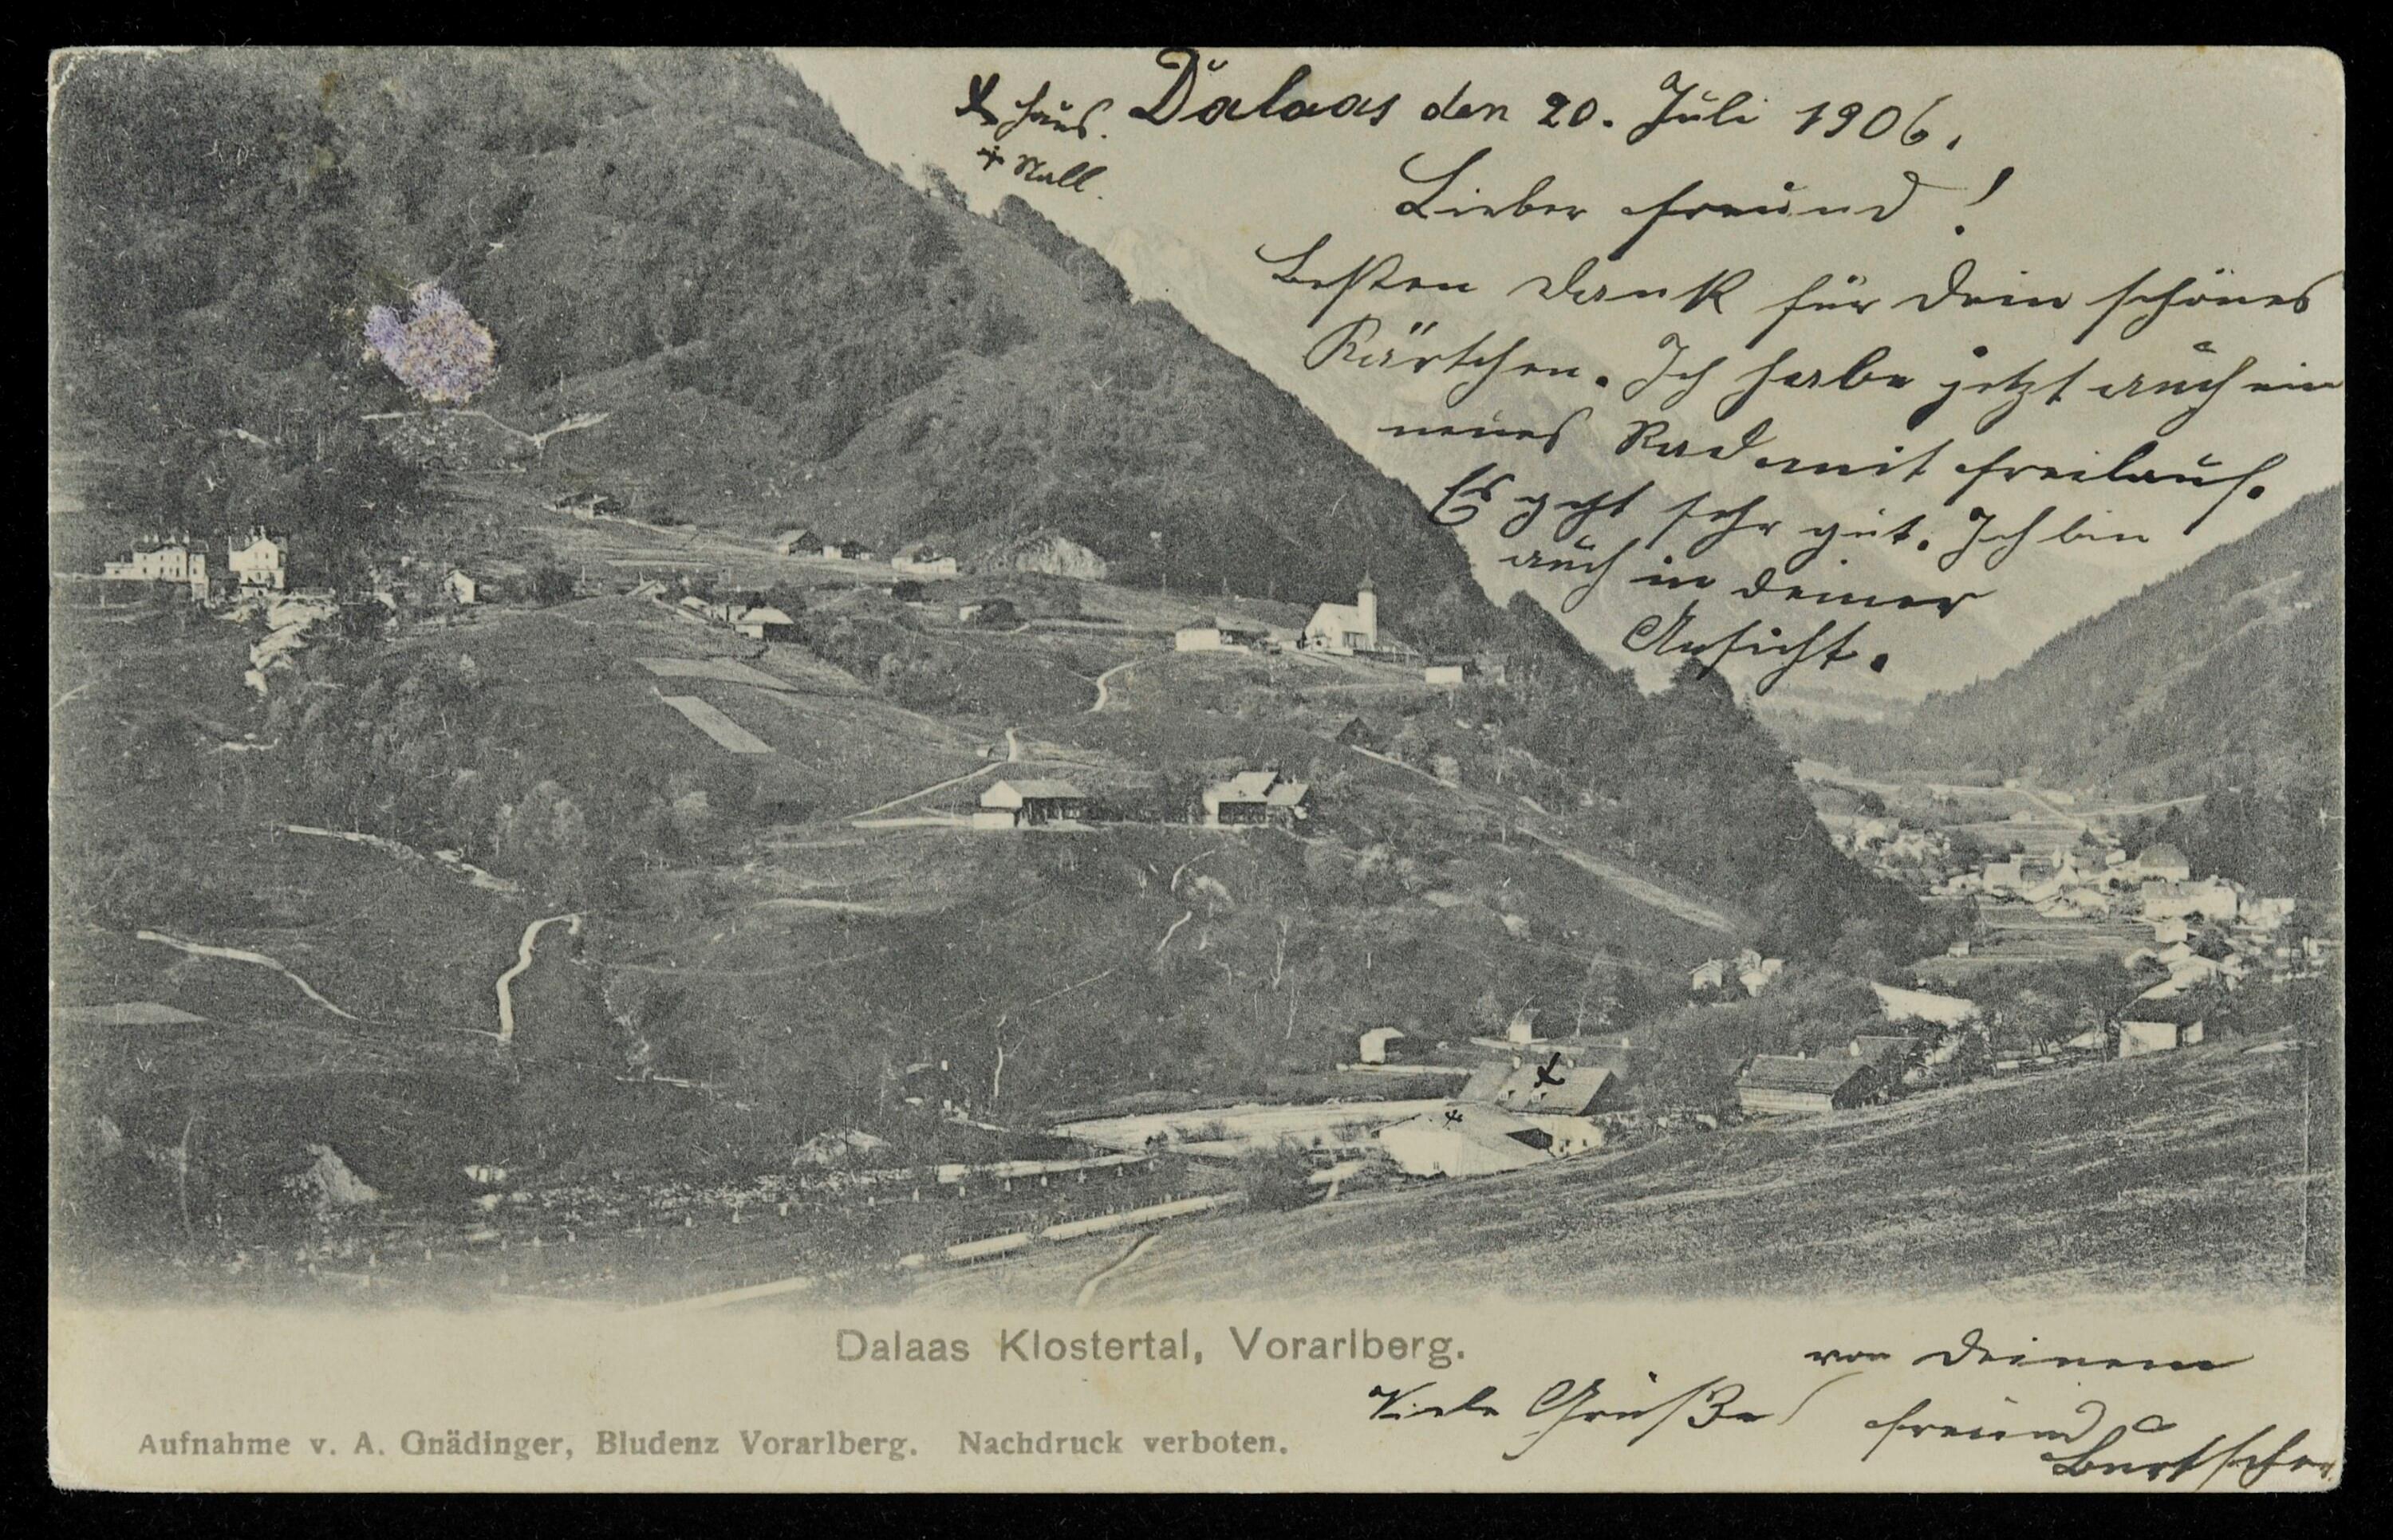 x Haus.
+ Stall.
Dalaas den 20. Juli 1906.
Lieber Freund!
Besten Dank für Dein schönes
Kärtchen. Ich habe jetzt auch ein
neues Rad mit Freilauf.
Es geht sehr gut. Ich bin
auch in deiner
Ansicht.
Dalaas Klostertal, Vorarlberg.
Aufnahme v. A. Gnädinger, Bludenz Vorarlberg. Nachdruck verboten.
Viele Grüße
von Deinem
Freund
Burtscher